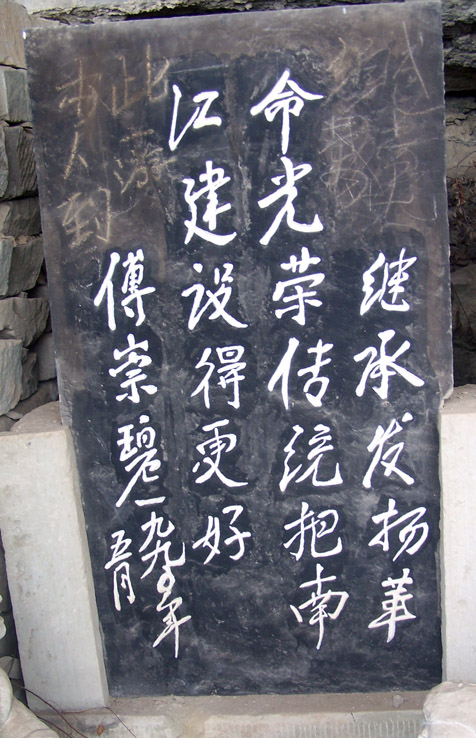 继承发扬革
命光荣传统把南
江建设得更好
傅崇碧一九九〇年
五月